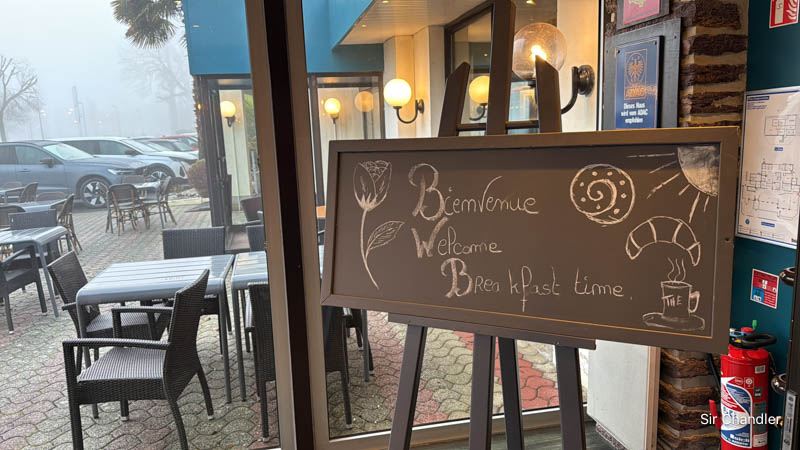 Bienvenue
Welcome
Breakfast time.
THE
Dieses Haus
wird vom ADAC
empfohlen
Sir Chandler